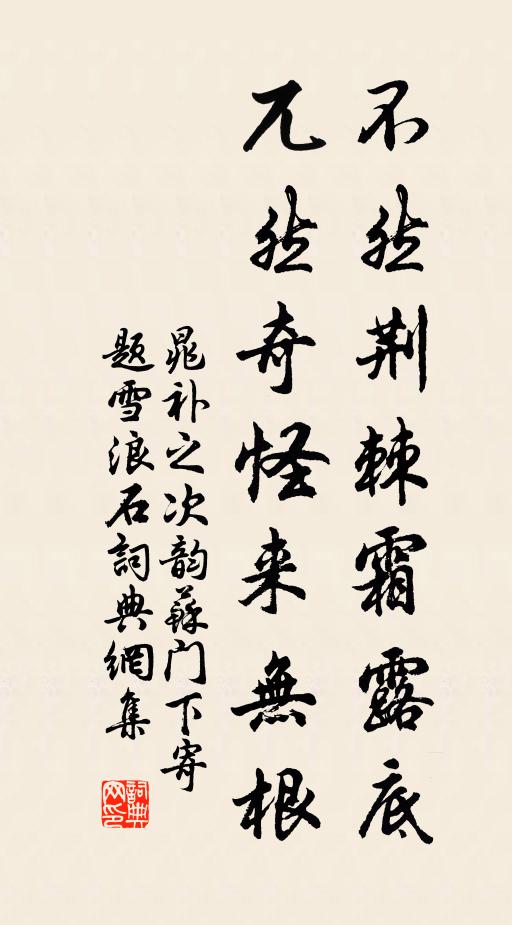 不然荆棘霜露底
兀然奇怪来無根
晁补之次韵蘇门下寄
题雪浪石詞典網集
詞典
网印